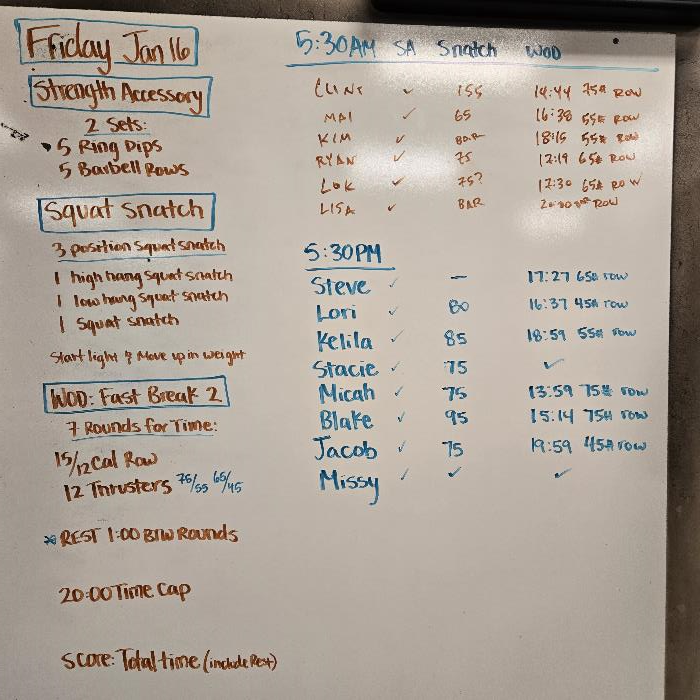 Friday Jan 16
Strength Accessory
2 Sets:
5 Ring Dips
5 Barbell Rows
Squat Snatch
3 position squat snatch
1 high hang squat snatch
1 low hang squat snatch
1 squat snatch
Start light & Move up in weight
WOD: Fast Break 2
7 Rounds for Time:
15/12 Cal Row
12 Thrusters 75/55 65/45
* REST 1:00 BTW Rounds
20:00 Time Cap
Score: Total time (include Rest)
5:30AM SA Snatch WOD
CLINT ✓ 155 14:44 75# ROW
MAI ✓ 65 16:38 55# ROW
KIM ✓ BAR 18:15 55# ROW
RYAN ✓ 75 12:19 65# ROW
LUK ✓ 75? 17:30 65# ROW
LISA ✓ BAR ROW
5:30PM
Steve ✓ — 17:27 65# row
Lori ✓ 80 16:37 45# row
Kelila ✓ 85 18:59 55# row
Stacie ✓ 75 ✓
Micah ✓ 75 13:59 75# row
Blake ✓ 95 15:14 75# row
Jacob ✓ 75 19:59 45# row
Missy ✓ ✓ ✓